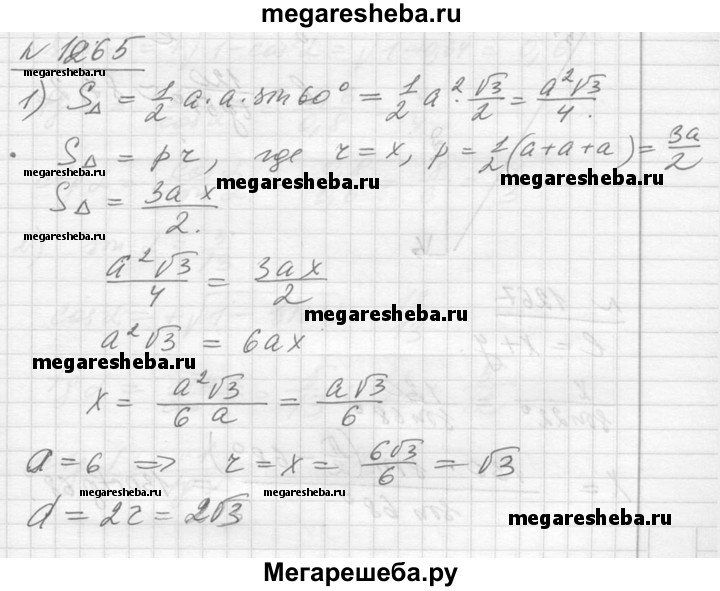 megaresheba.ru
№ 1265
megaresheba.ru
megaresheba.ru
1) S△ = 1/2 a·a·sin60° = 1/2 a²·√3/2 = a²√3/4.
S△ = pr, где r = x, p = 1/2(a+a+a) = 3a/2
megaresheba.ru
megaresheba.ru
S△ = 3ax/2.
megaresheba.ru
a²√3/4 = 3ax/2
megaresheba.ru
a²√3 = 6ax
megaresheba.ru
x = a²√3/6a = a√3/6
megaresheba.ru
a = 6 => r = x = 6√3/6 = √3
megaresheba.ru
megaresheba.ru
d = 2r = 2√3
megaresheba.ru
Мегарешеба.ру